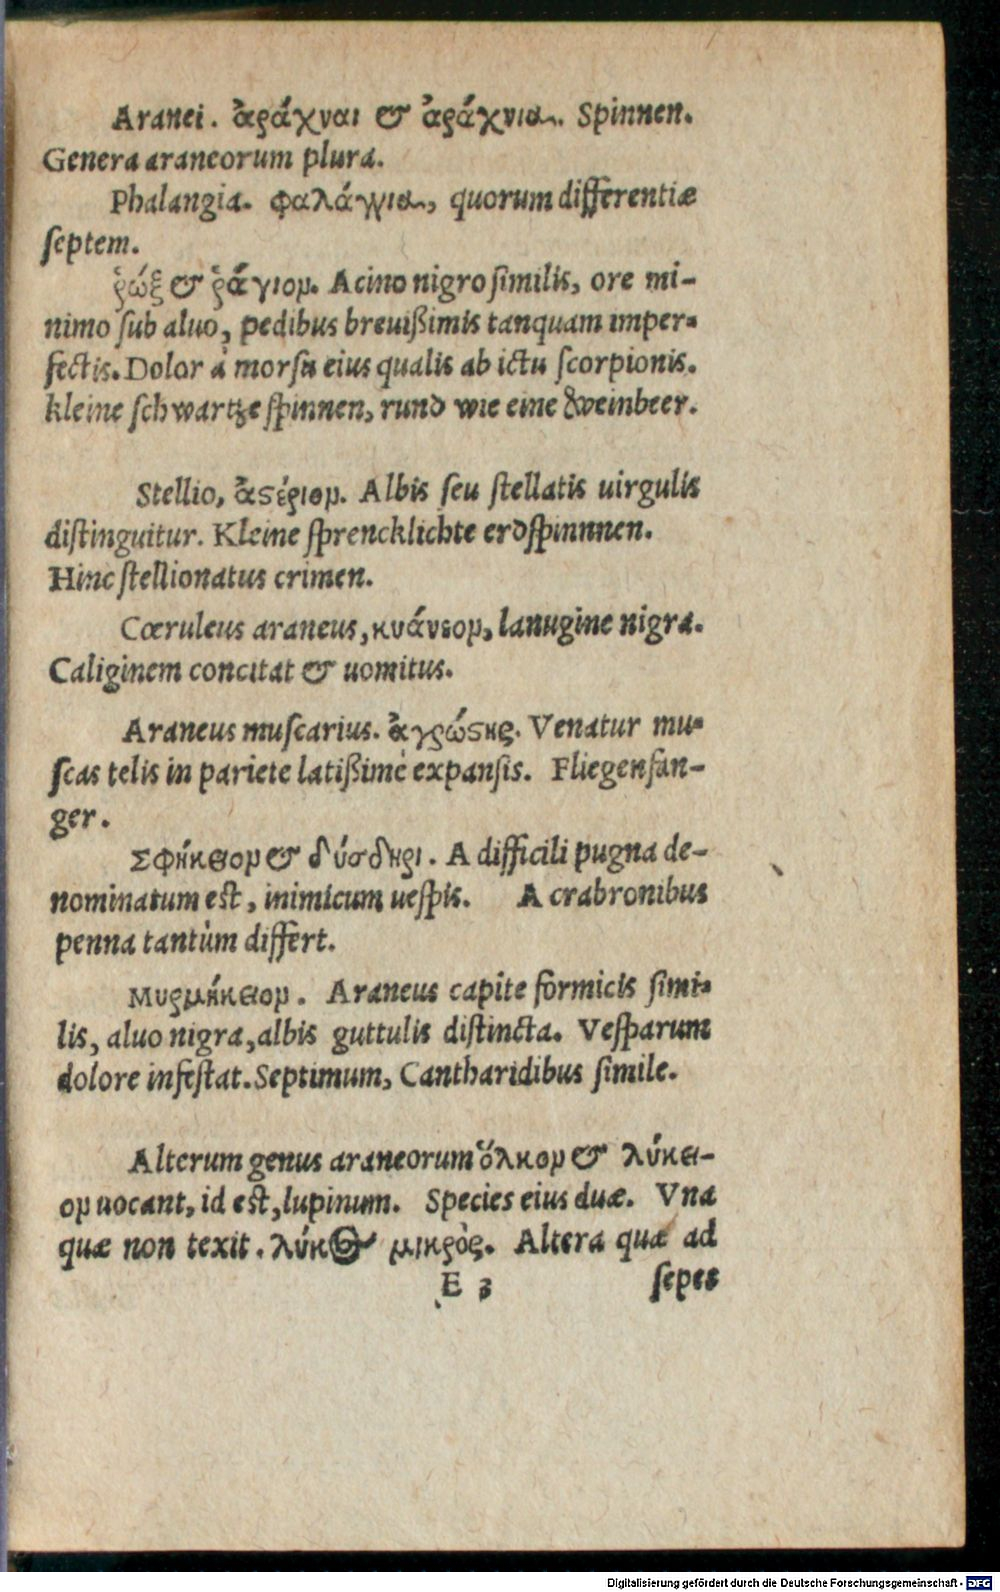 Aranei. ἀράχναι & ἀράχνια. Spinnen.
Genera araneorum plura.
Phalangia. φαλάγγια, quorum differentiæ
ſeptem.
ῥώξ & ῥάγιον. Acino nigro ſimilis, ore mi-
nimo ſub aluo, pedibus breuißimis tanquam imper-
fectis. Dolor à morſu eius qualis ab ictu ſcorpionis.
kleine ſchwartze ſpinnen, rund wie eine weinbeer.
Stellio, ἀστέριον. Albis ſeu ſtellatis uirgulis
diſtinguitur. Kleine ſprencklichte erdſpinnnen.
Hinc ſtellionatus crimen.
Cœruleus araneus, κυάνεον, lanugine nigra.
Caliginem concitat & uomitus.
Araneus muſcarius. ἀγρώστης. Venatur mu-
ſcas telis in pariete latißimè expanſis. Fliegenfan-
ger.
Σφήκειον & δύσδηρι. A difficili pugna de-
nominatum est, inimicum ueſpis. A crabronibus
penna tantùm differt.
Μυρμήκειον. Araneus capite formicis ſimi-
lis, aluo nigra, albis guttulis diſtincta. Veſparum
dolore infeſtat. Septimum, Cantharidibus ſimile.
Alterum genus araneorum ὅλκον & λύκει-
ον uocant, id est, lupinum. Species eius duæ. Vna
quæ non texit. λύκος μικρὸς. Altera quæ ad
E 3 ſepes
Digitalisierung gefördert durch die Deutsche Forschungsgemeinschaft - DFG